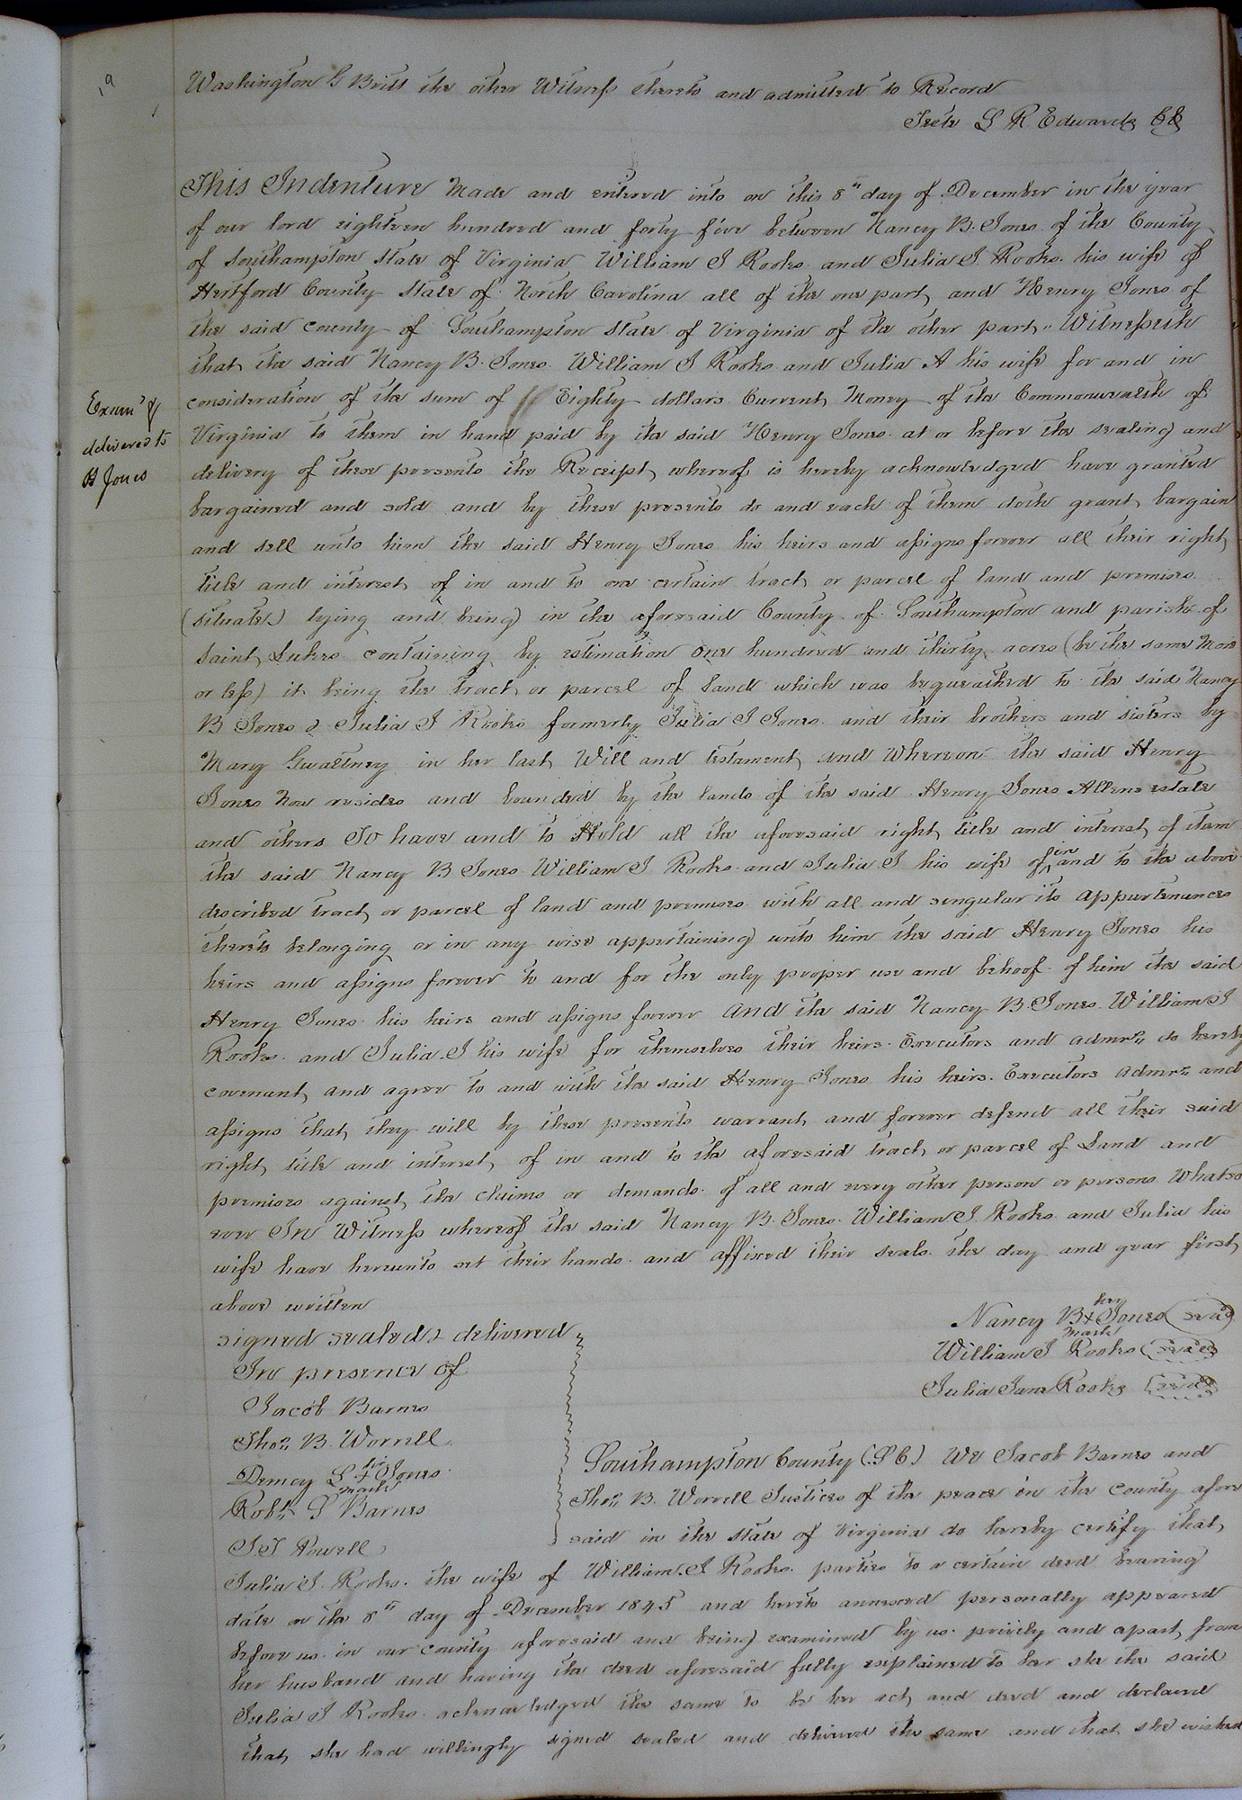 19
Washington G Britt the other Witness thereto and admitted to Record
Teste L R Edwards CC
This Indenture Made and entered into on this 8th day of December in the year
of our lord eighteen hundred and forty five between Nancy B. Jones of the County
of Southampton State of Virginia William J Rooks and Julia J. Rooks his wife of
Hertford County State of North Carolina all of the one part and Henry Jones of
the said county of Southampton State of Virginia of the other part Witnesseth
that the said Nancy B. Jones William J Rooks and Julia A his wife for and in
consideration of the sum of Eighty dollars Current Money of the Commonwealth of
Virginia to them in hand paid by the said Henry Jones at or before the sealing and
delivery of these presents the Receipt whereof is hereby acknowledged have granted
bargained and sold and by these presents do and each of them doth grant bargain
and sell unto him the said Henry Jones his heirs and assigns forever all their right
title and interest of in and to one certain tract or parcel of land and premises
(situate) lying and being) in the aforesaid County of Southampton and parish of
Saint Lukes containing by estimation one hundred and thirty acres (be the same More
or less) it being the tract or parcel of land which was bequeathed to the said Nancy
B Jones & Julia J Rooks formerly Julia J Jones and their brothers and sisters by
Mary Gwaltney in her last Will and testament and Whereon the said Henry
Jones Now resides and bounded by the lands of the said Henry Jones Allens estate
and others To have and to Hold all the aforesaid right title and interest of them
the said Nancy B Jones William J Rooks and Julia J his wife of in and to the above
described tract or parcel of land and premises with all and singular its appurtenances
thereto belonging or in any wise appertaining unto him the said Henry Jones his
heirs and assigns forever to and for the only proper use and behoof of him the said
Henry Jones his heirs and assigns forever And the said Nancy B. Jones William J
Rooks and Julia J his wife for themselves their heirs Executors and admrs do hereby
covenant and agree to and with the said Henry Jones his heirs Executors admrs and
assigns that they will by these presents warrant and forever defend all their said
right title and interest of in and to the aforesaid tract or parcel of Land and
premises against the claims or demands of all and every other person or persons Whatso
ever In Witness whereof the said Nancy B. Jones William J. Rooks and Julia his
wife have hereunto set their hands and affixed their seals the day and year first
above written
Exam'd &
delivered to
H Jones
signed sealed & delivered
In presence of
Jacob Barnes
Thos. B. Worrell
Demcy L + Jones
his
mark
Robt. S Barnes
J T Powell
Nancy B + Jones seal
her
mark
William J Rooks seal
Julia Jane Rooks seal
Southampton County (S C) We Jacob Barnes and
Thos. B. Worrell Justices of the peace in the County afore
said in the State of Virginia do hereby certify that
Julia J. Rooks the wife of William J. Rooks parties to a certain deed bearing
date on the 8th day of December 1845 and hereto annexed personally appeared
before us in our county aforesaid and being examined by us privily and apart from
her husband and having the deed aforesaid fully explained to her she the said
Julia J Rooks acknowledged the same to be her act and deed and declared
that she had willingly signed sealed and delivered the same and that she wished